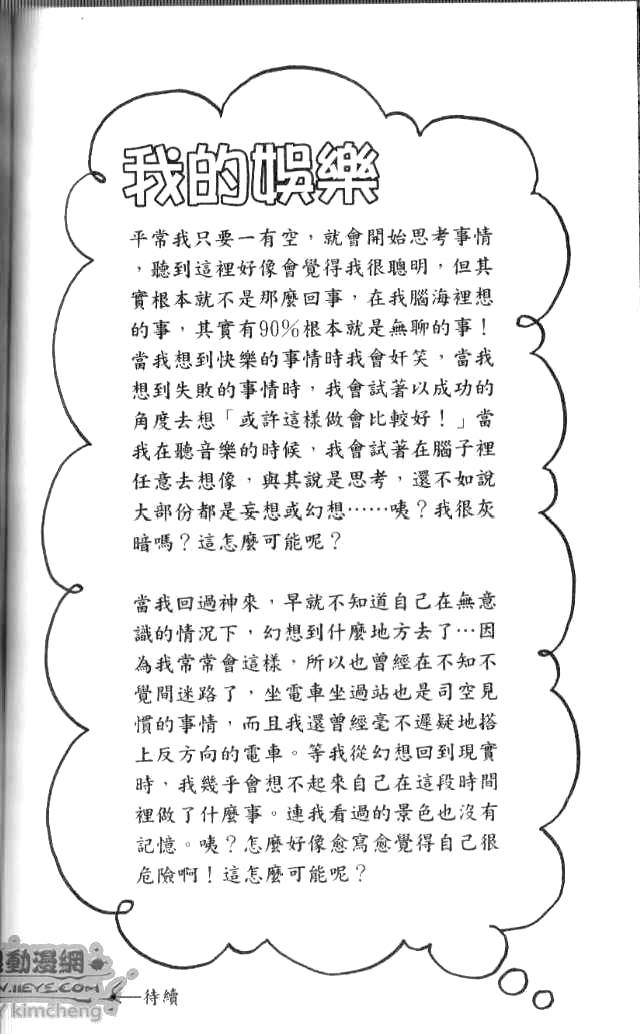 我的娛樂
平常我只要一有空，就會開始思考事情
，聽到這裡好像會覺得我很聰明，但其
實根本就不是那麼回事，在我腦海裡想
的事，其實有90%根本就是無聊的事！
當我想到快樂的事情時我會奸笑，當我
想到失敗的事情時，我會試著以成功的
角度去想「或許這樣做會比較好！」當
我在聽音樂的時候，我會試著在腦子裡
任意去想像，與其說是思考，還不如說
大部份都是妄想或幻想……咦？我很灰
暗嗎？這怎麼可能呢？
當我回過神來，早就不知道自己在無意
識的情況下，幻想到什麼地方去了…因
為我常常會這樣，所以也曾經在不知不
覺間迷路了，坐電車坐過站也是司空見
慣的事情，而且我還曾經毫不遲疑地搭
上反方向的電車。等我從幻想回到現實
時，我幾乎會想不起來自己在這段時間
裡做了什麼事。連我看過的景色也沒有
記憶。咦？怎麼好像愈寫愈覺得自己很
危險啊！這怎麼可能呢？
待續
動漫網
W.IIEYE.COM
kimcheng